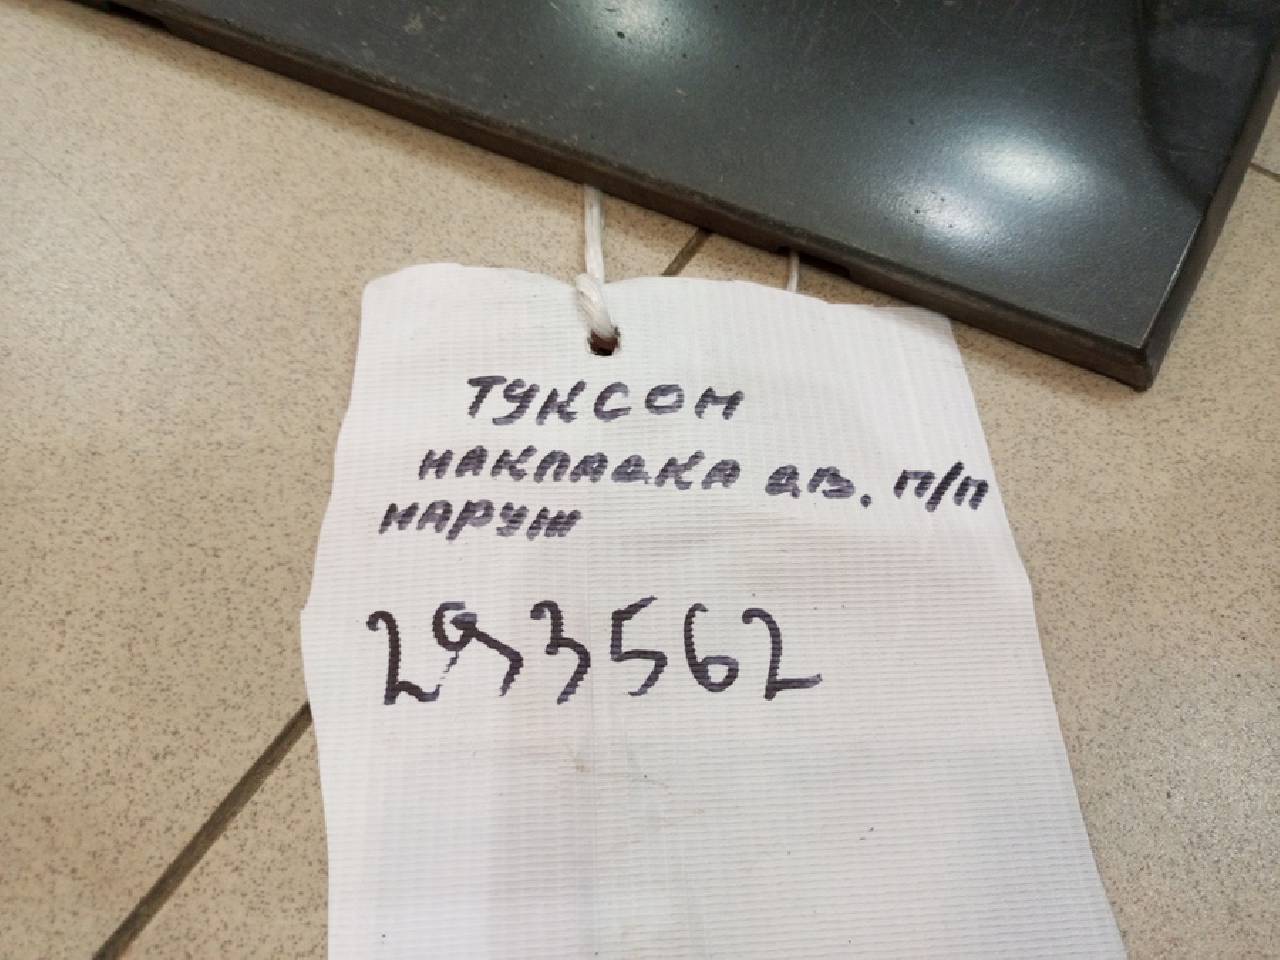 ТУКСОН
НАКЛАДКА дв. П/П
НАРУЖ
293562